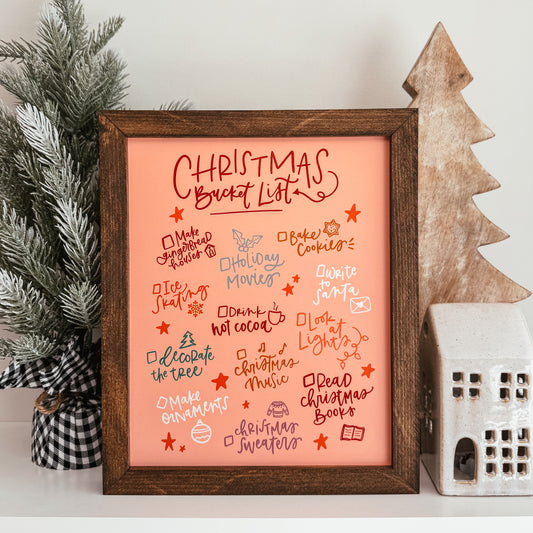 CHRISTMAS
Bucket List
Make
gingerbread
houses
Holiday
Movies
Bake
Cookies
Write
to
Santa
Ice
Skating
Drink
hot cocoa
Look
at
Lights
decorate
the tree
Christmas
Music
Read
Christmas
Books
Make
ornaments
Christmas
Sweaters